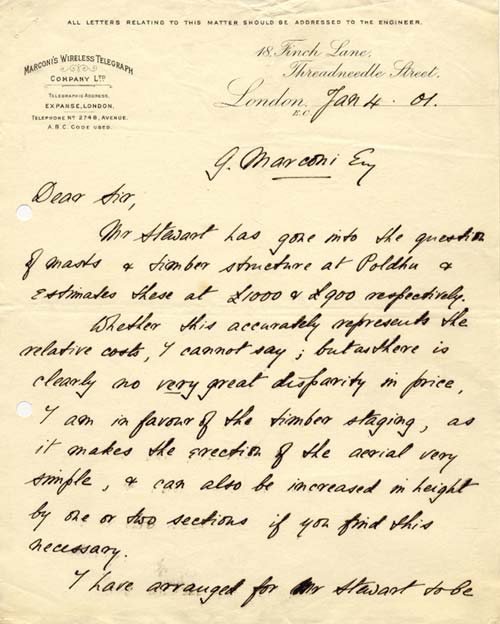 ALL LETTERS RELATING TO THIS MATTER SHOULD BE ADDRESSED TO THE ENGINEER.
MARCONI'S WIRELESS TELEGRAPH
COMPANY LTD
TELEGRAPHIC ADDRESS,
EXPANSE, LONDON.
TELEPHONE NO 2748, AVENUE.
A.B.C. CODE USED.
18, Finch Lane,
Threadneedle Street,
London, Jan 4. 01.
E.C.
G. Marconi Esq
Dear Sir,
Mr Stewart has gone into the question
of masts & timber structure at Poldhu &
estimates these at £1000 & £900 respectively.
Whether this accurately represents the
relative costs, I cannot say; but as there is
clearly no very great disparity in price,
I am in favour of the timber staging, as
it makes the erection of the aerial very
simple, & can also be increased in height
by one or two sections if you find this
necessary.
I have arranged for Mr Stewart to be